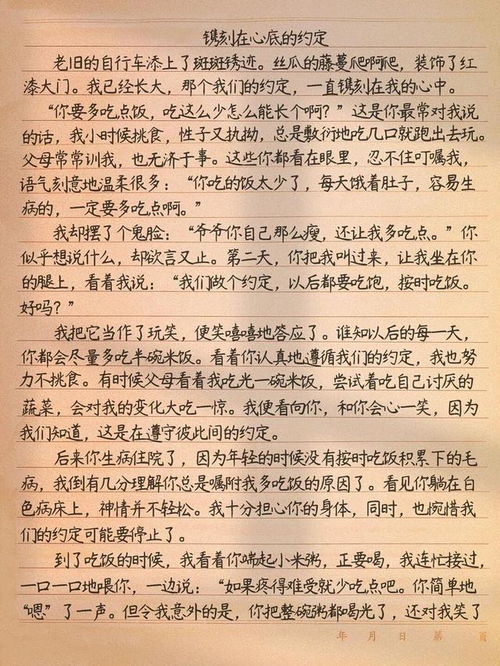 镌刻在心底的约定
老旧的自行车添上了斑斑锈迹。丝瓜的藤蔓爬啊爬，装饰了红
漆大门。我已经长大，那个我们的约定，一直镌刻在我的心中。
“你要多吃点饭，吃这么少怎么能长个啊？”这是你最常对我说
的话，我小时候挑食，性子又执拗，总是敷衍地吃几口就跑出去玩。
父母常常训我，也无济于事。这些你都看在眼里，忍不住叮嘱我，
语气刻意地温柔很多：“你吃的饭太少了，每天饿着肚子，容易生
病的，一定要多吃点啊。”
我却摆了个鬼脸：“爷爷你自己那么瘦，还让我多吃点。”你
似乎想说什么，却欲言又止。第二天，你把我叫过来，让我坐在你
的腿上，看着我说：“我们做个约定，以后都要吃饱，按时吃饭。
好吗？”
我把它当作了玩笑，便笑嘻嘻地答应了。谁知以后的每一天，
你都会尽量多吃半碗米饭。看着你认真地遵循我们的约定，我也努
力不挑食。有时候父母看着我吃光一碗米饭，尝试着吃自己讨厌的
蔬菜，会对我的变化大吃一惊。我便看向你，和你会心一笑，因为
我们知道，这是在遵守彼此间的约定。
后来你生病住院了，因为年轻的时候没有按时吃饭积累下的毛
病，我倒有几分理解你总是嘱咐我多吃饭的原因了。看见你躺在白
色病床上，神情并不轻松。我十分担心你的身体，同时，也惋惜我
们的约定可能要停止了。
到了吃饭的时候，我看着你端起小米粥，正要喝，我连忙接过，
一口一口地喂你，一边说：“如果疼得难受就少吃点吧。你简单地
“嗯”了一声。但令我意外的是，你把整碗粥都喝光了，还对我笑了
年 月 日 第 页